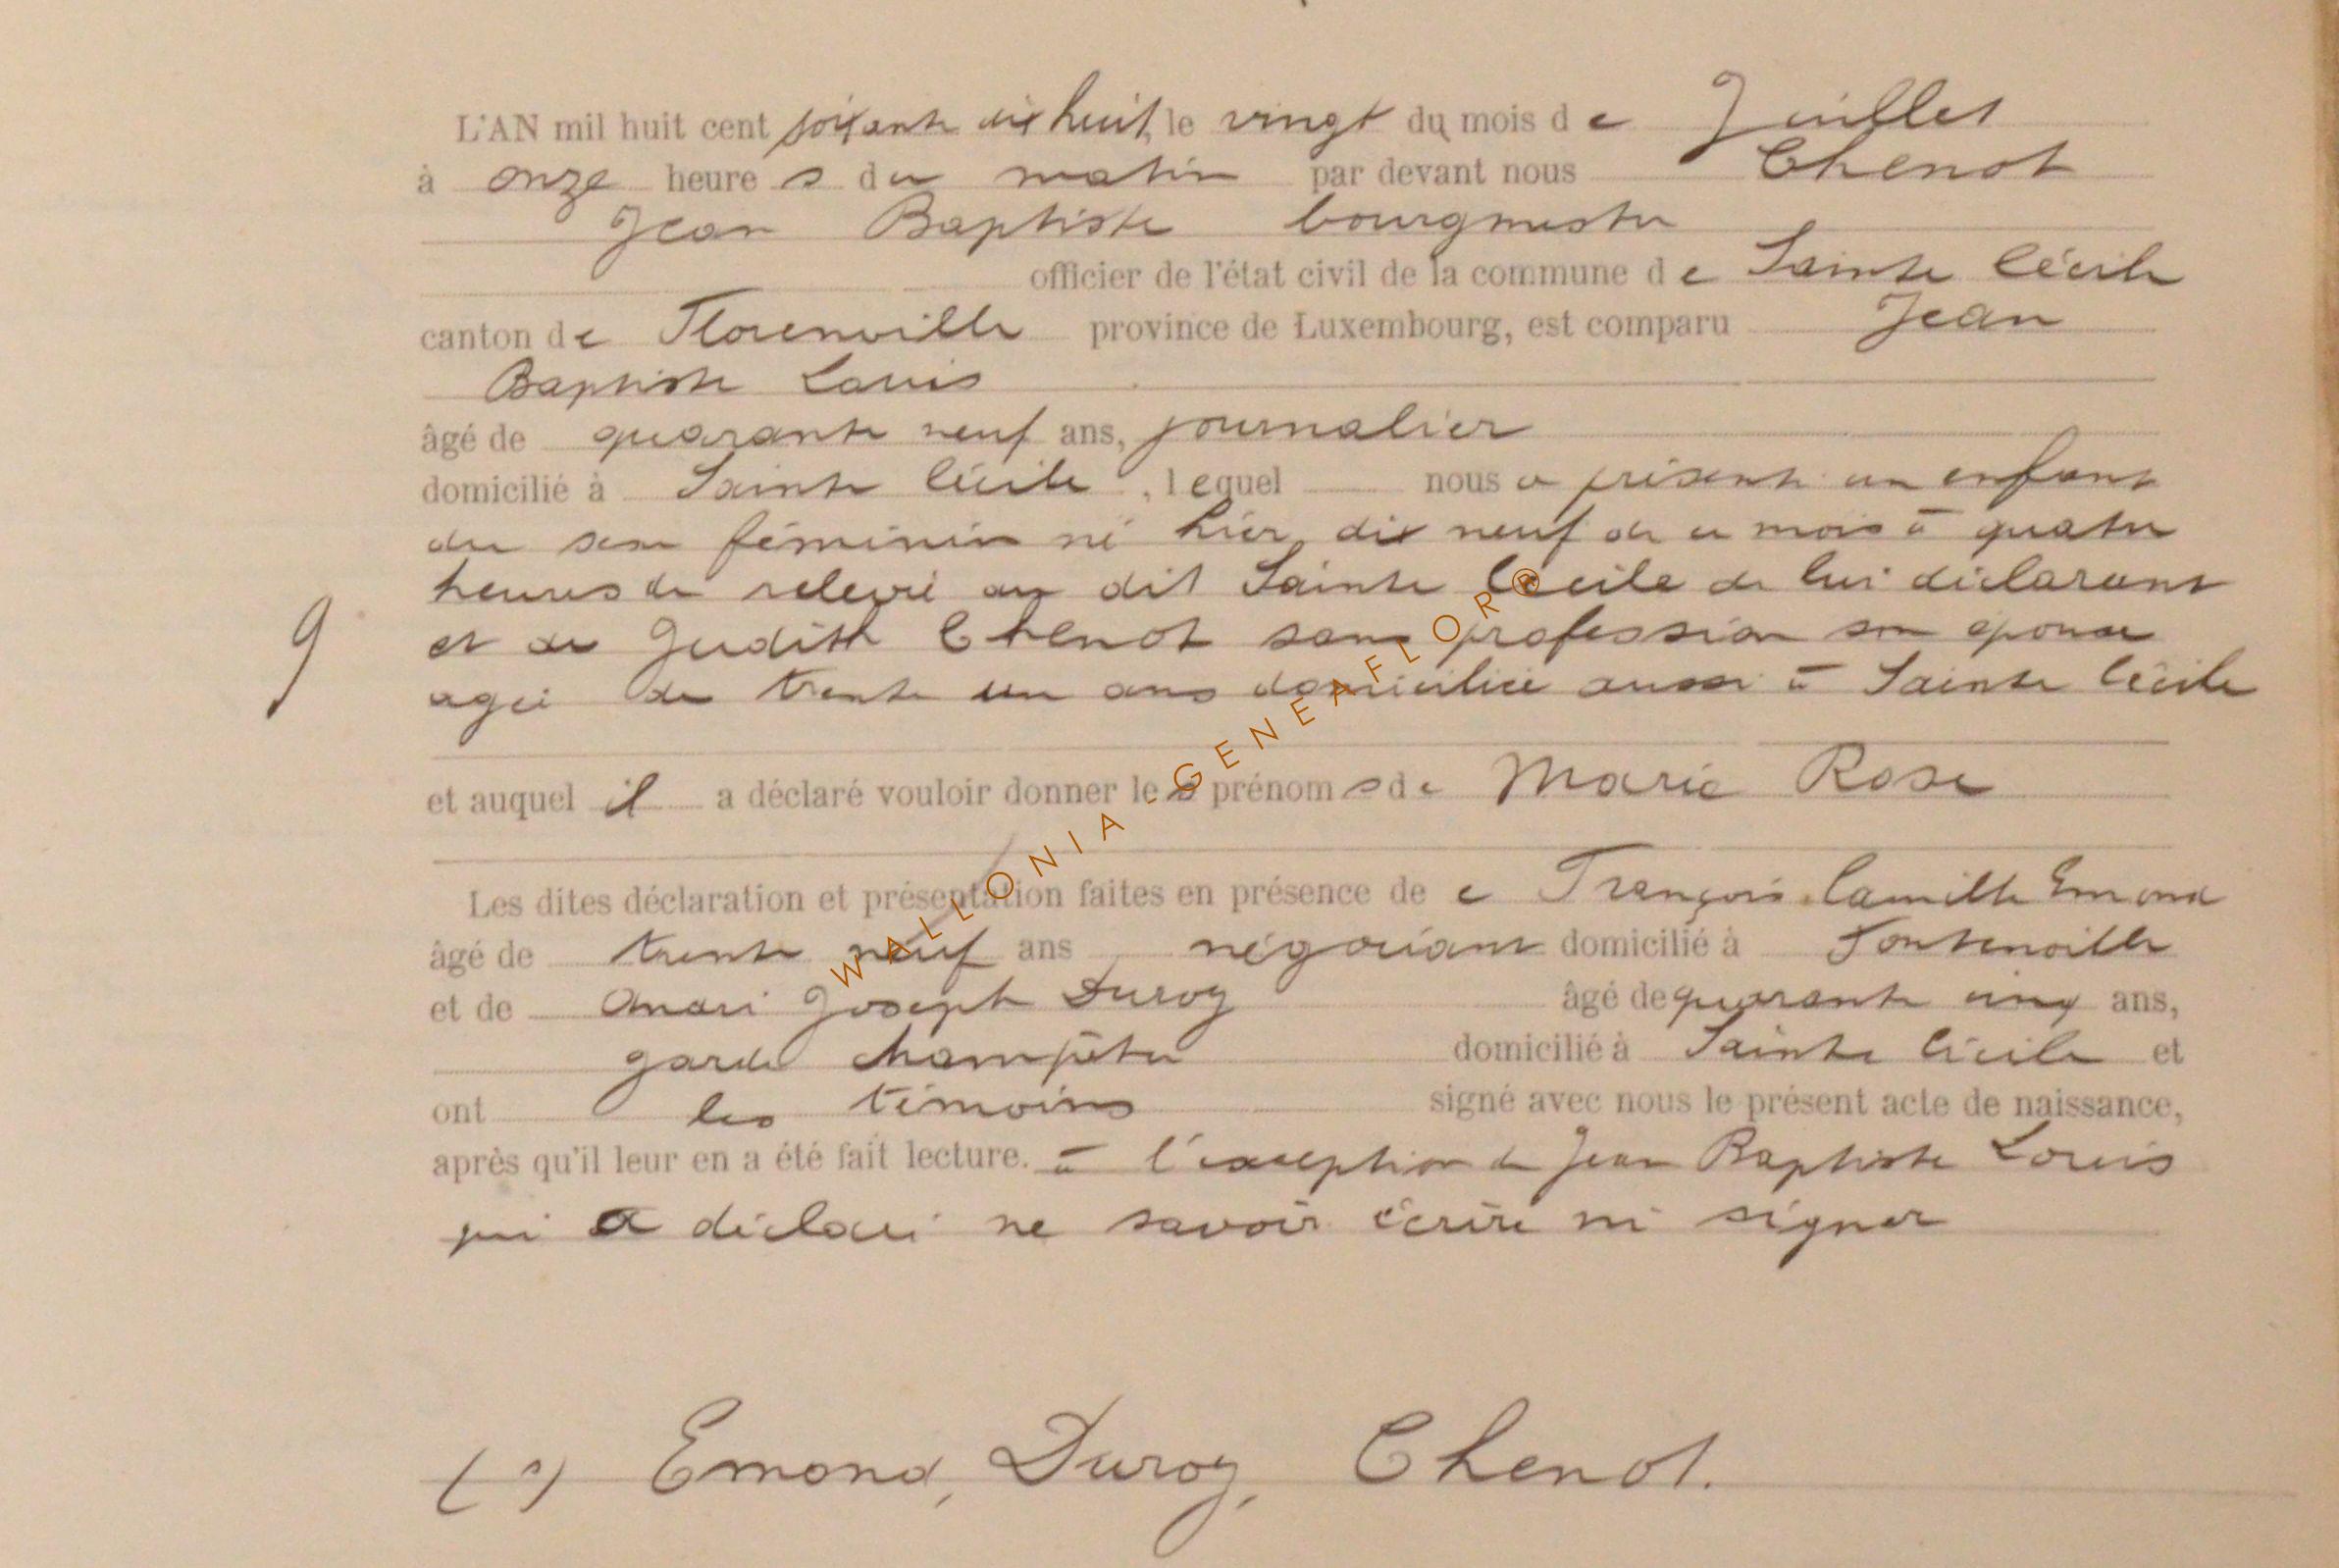 L'AN mil huit cent soixante dix huit, le vingt du mois de Juillet
à onze heures du matin par devant nous Chenot
Jean Baptiste bourgmestre
officier de l'état civil de la commune de Sainte Cécile
canton de Florenville province de Luxembourg, est comparu Jean
Baptiste Louis
âgé de quarante neuf ans, journalier
domicilié à Sainte Cécile, lequel nous a présenté un enfant
du sexe féminin né hier dix neuf de ce mois à quatre
heures de relevée au dit Sainte Cécile de lui déclarant
et de Judith Chenot sans profession son épouse
agée de trente un ans domiciliée aussi à Sainte Cécile
9
et auquel il a déclaré vouloir donner les prénoms de Marie Rose
Les dites déclaration et présentation faites en présence de e François Camille Emond
âgé de trente neuf ans négociant domicilié à Fontenoille
et de Joseph Duroy âgé de quarante cinq ans,
garde champêtre domicilié à Sainte Cécile et
ont les témoins signé avec nous le présent acte de naissance,
après qu'il leur en a été fait lecture. à l'exception de Jean Baptiste Louis
qui a déclaré ne savoir écrire ni signer
(s) Emond, Duroy, Chenot.
WALLONIA - GENEAFLOR®